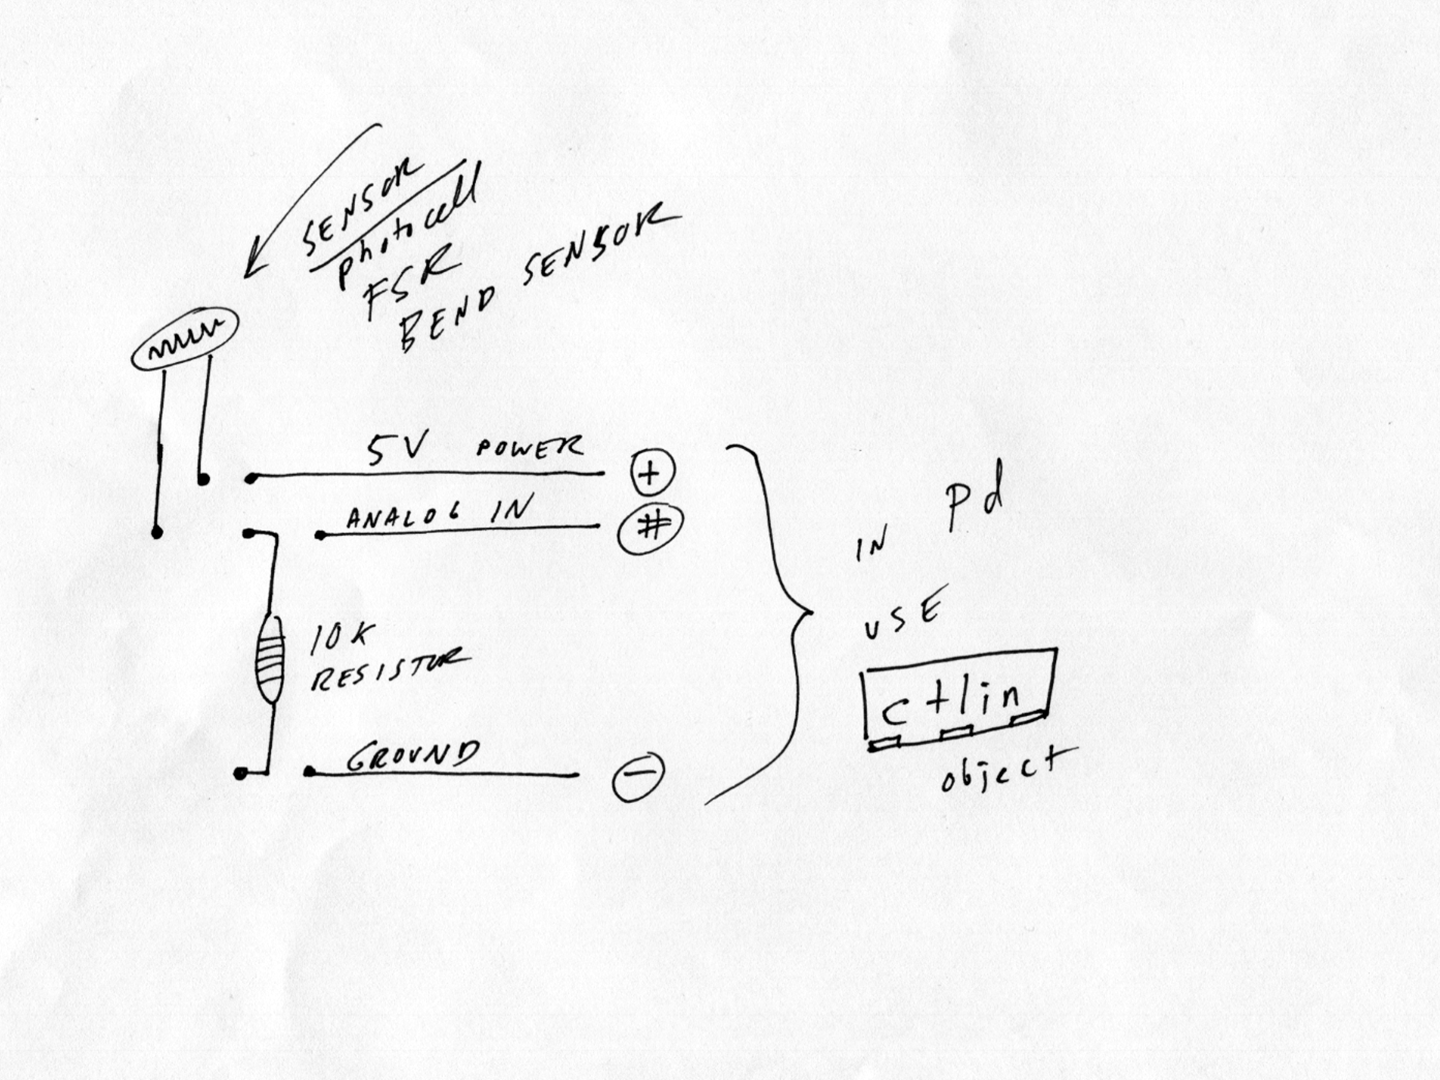 SENSOR
photocell
FSR
BEND SENSOR
5V POWER +
ANALOG IN #
10K
RESISTOR
GROUND −
IN Pd
USE
ctlin
object